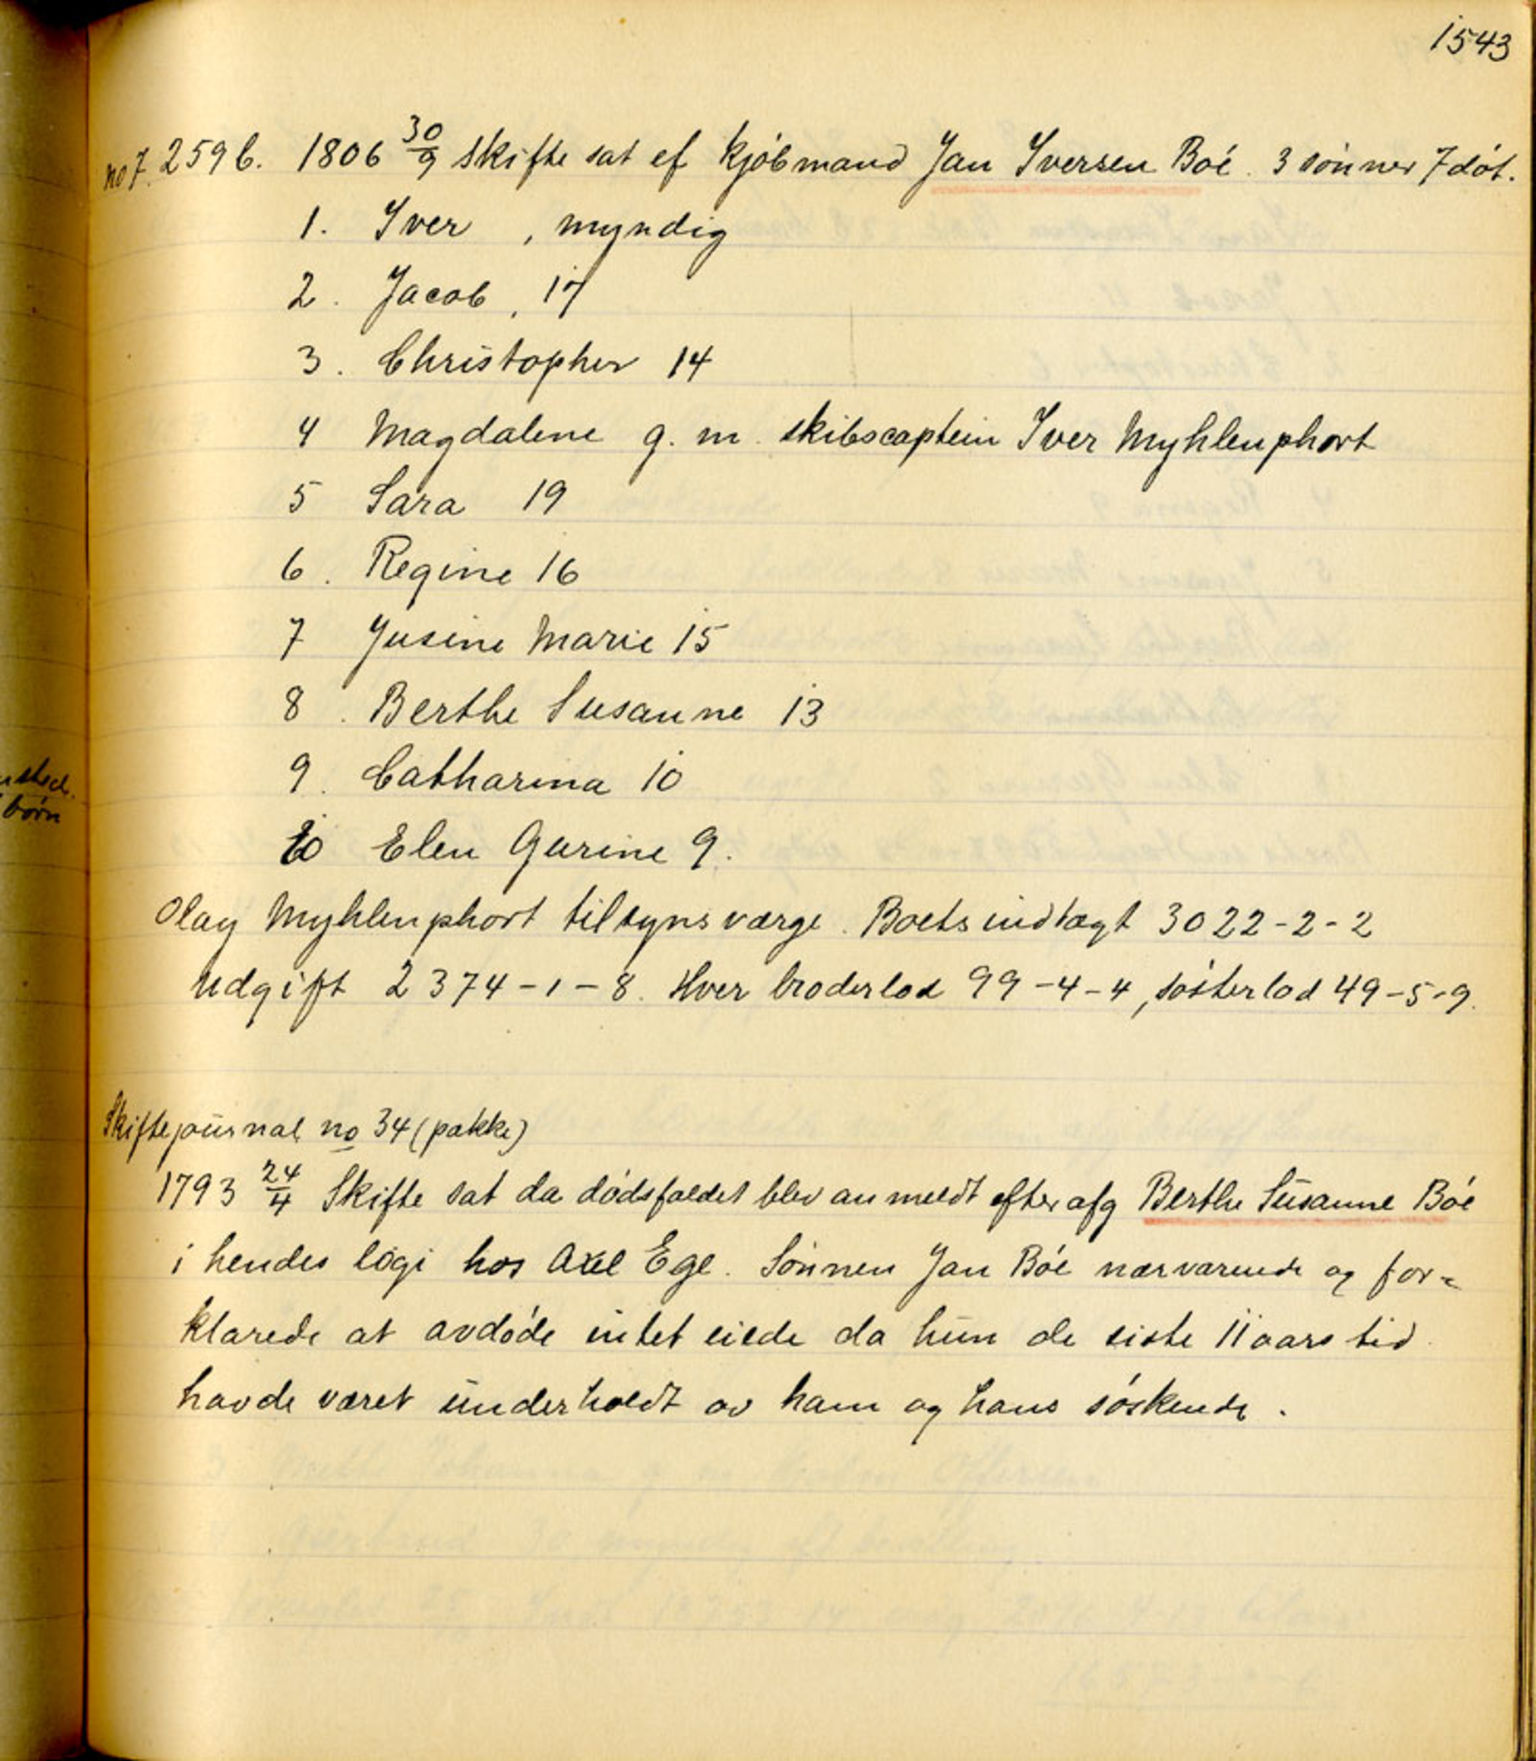 1543
no 7. 259 b. 1806 30/9 skifte sat ef kjøbmand Jan Iversen Boé. 3 sønner 7 døt.
1. Iver , myndig
2. Jacob , 17
3. Christopher 14
4 Magdalene g. m. skibscaptein Iver Myhlenphort
5 Sara 19
6. Regine 16
7 Jusine Marie 15
8. Berthe Susanne 13
9. Catharina 10
10 Elen Gurine 9.
Olay Myhlenphort tilsynsværge. Boets indtægt 3022-2-2
Udgift 2374-1-8. Hver broderlod 99-4-4, søsterlod 49-5-9.
Skiftejournal no 34 (pakke)
1793 24/4 Skifte sat da dødsfaldet blev anmeldt efter afg Berthe Susanne Bóe
i hendes logi hos Axel Ege. Sønnen Jan Bóe nærværende og for=
klarede at avdøde intet eiede da hun de siste 11 aars tid
havde været underholdt av ham og hans søskende.
sted.
børn